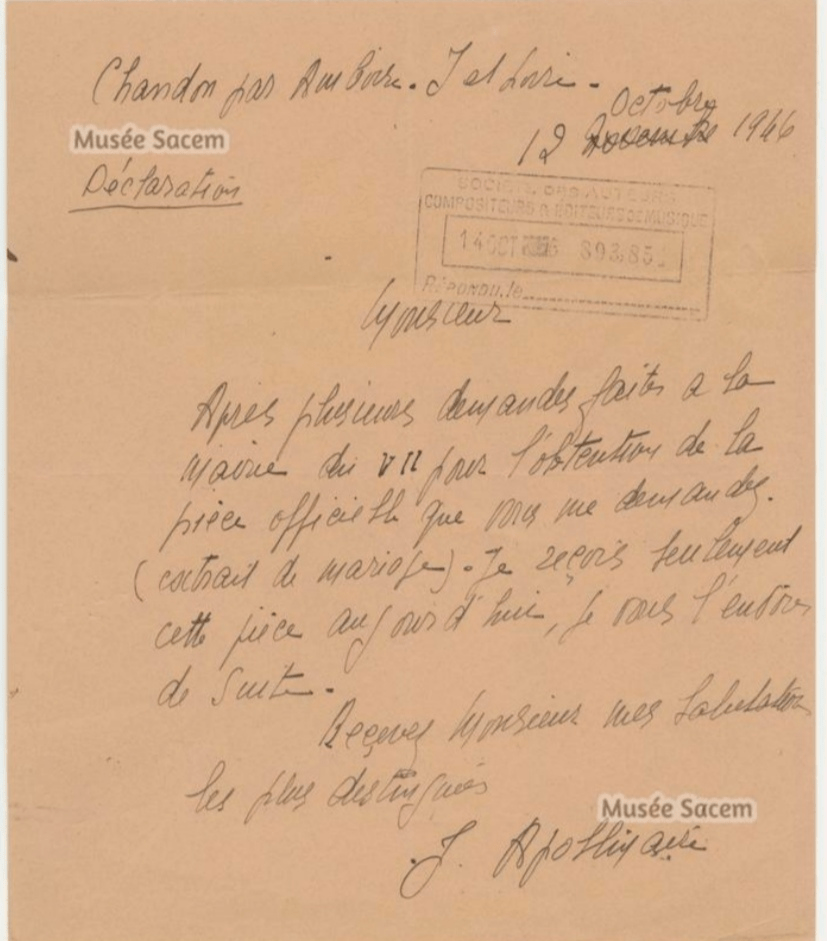 Chandon par Amboise. I et Loire.
Octobre
12 Novembre 1946
Musée Sacem
Déclaration
SOCIETE DES AUTEURS
COMPOSITEURS & EDITEURS DE MUSIQUE
14 OCT
RÉPONDU, le
Monsieur
Après plusieurs demandes faites a la
mairie du VII pour l'obtention de la
pièce officielle que vous me demandez.
(extrait de mariage). Je reçois seulement
cette pièce aujourd'hui, je vous l'envoies
de suite.
Reçevez Monsieur mes salutations
les plus distinguées
Musée Sacem
J. Apollinaire